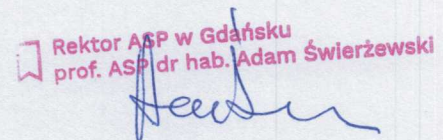 Rektor ASP w Gdańsku
prof. ASP dr hab. Adam Świerżewski